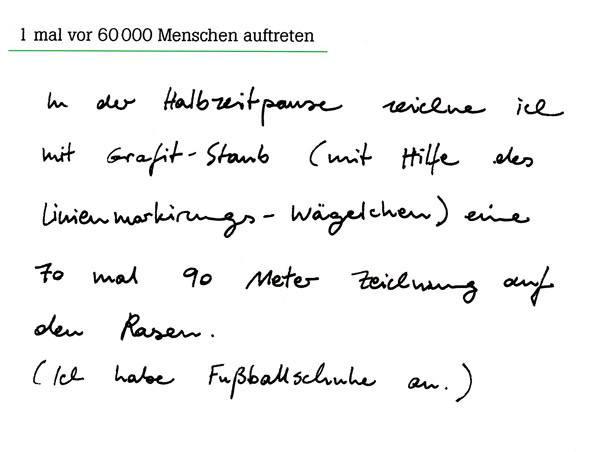 1 mal vor 60 000 Menschen auftreten
In der Halbzeitpause zeichne ich
mit Grafit-Staub (mit Hilfe des
Linienmarkirungs-Wägelchen) eine
70 mal 90 Meter Zeichnung auf
den Rasen.
(Ich habe Fußballschuhe an.)